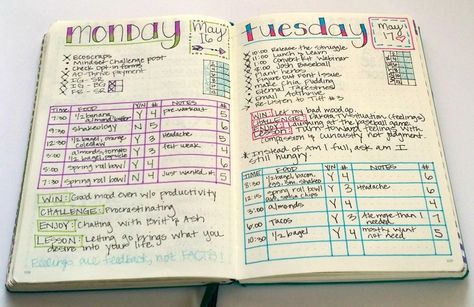 monday
May
16
Ecoscraps
Mindset Challenge post
Check opt-in forms
AO Thrive payment
IG - SR
IG - BG
FB - SR
TIME FOOD Y/N # NOTES #
7:30 1/2 banana almond butter Y 4 pre-workout 5
9:30 Shakeology N 5 6
12:30 1/2 bagel, orange Coleslaw Y 3 Headache 5
3:00 almonds, tomato 1/2 bagel, Y 3 felt weak 4
5:00 Spring roll bowl Y 4 5
7:30 Spring roll bowl N 4 Just wanted it 5
WIN: Good mood even w/o productivity
CHALLENGE: Procrastinating
ENJOY: Chatting with Brit & Ash
LESSON: Letting go brings what you
desire into your life!
Feelings are feedback, not FACTS!
tuesday
May
17
10:00 Release the Struggle
11:00 Lunch
2:00 ConvertKit Webinar
6:30 Josh Baseball
Plant herbs
Figure out Font Issue
make Chia Pudding
Email
Re-Listen to TIFF #3
WIN: Let my bad mood go.
CHALLENGE: Situation (feelings)
ENJOY: at the baseball game.
LESSON: Turn toward feelings with
compassion & curiosity, not judgment
* Instead of Am I full, ask am I
still hungry.
TIME FOOD Y/N # NOTES #
8:30 1/2 bagel, bacon, egg, Y 4 6
12:15 spring roll bowl chips Y 3 Headache 6
3:00 almonds Y 4 4
6:00 Tacos Y 3 Ate more than I needed 7
10:30 1/2 bagel Y 4 mostly want not need 5